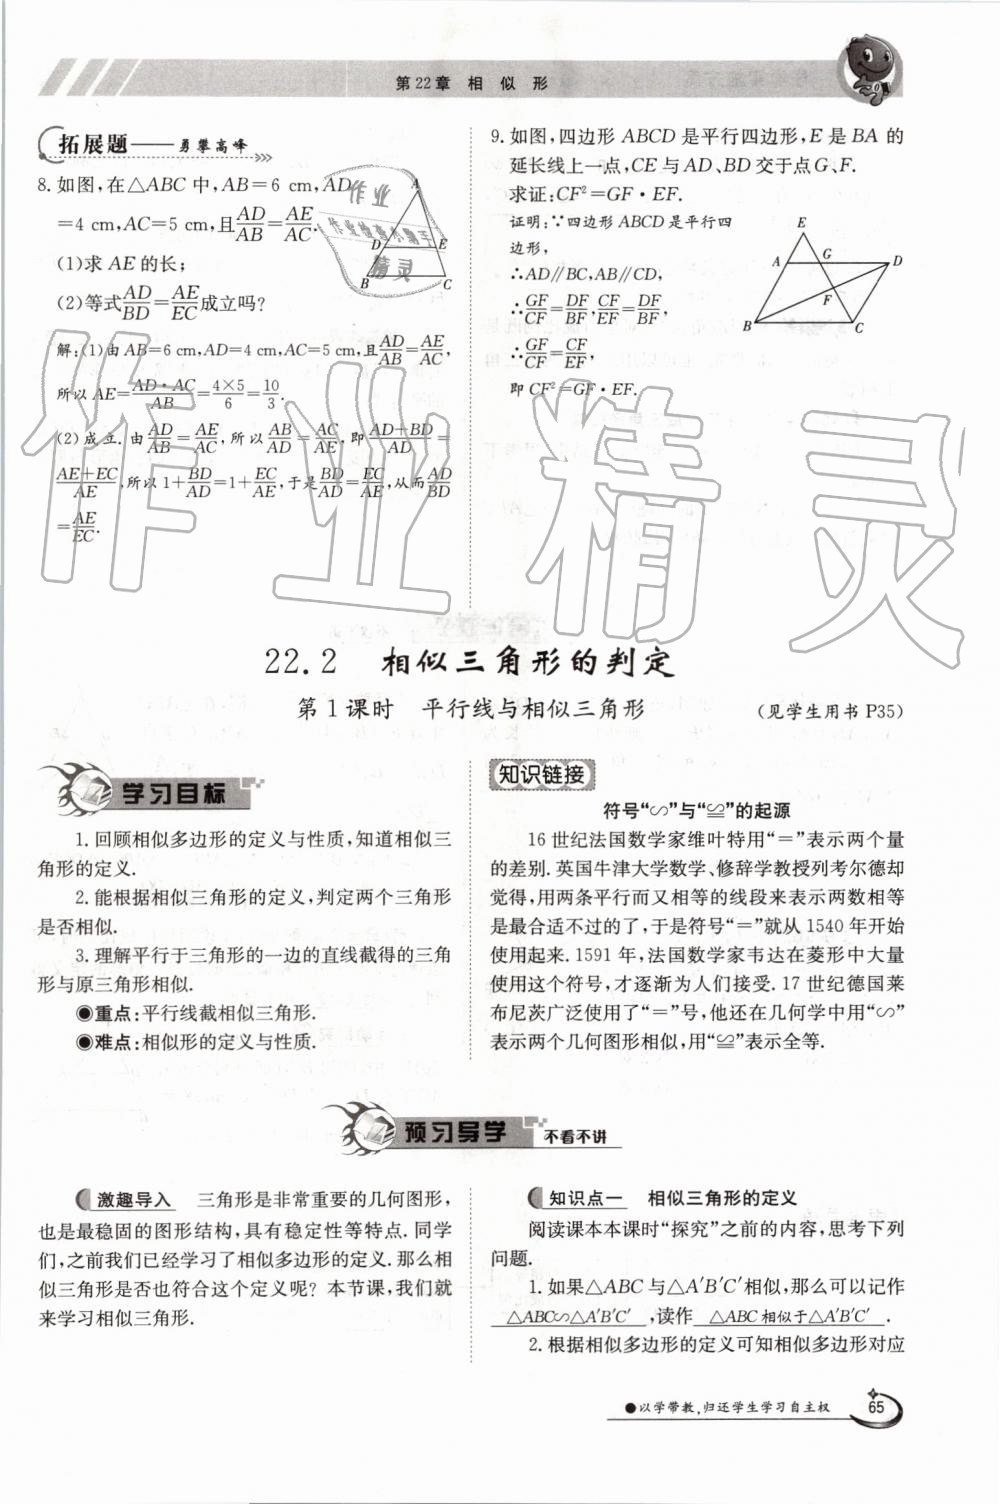 第22章 相似形
拓展题——勇攀高峰
8.如图,在△ABC中,AB=6 cm,AD
=4 cm,AC=5 cm,且AD/AB=AE/AC.
(1)求AE的长;
(2)等式AD/BD=AE/EC成立吗?
解:(1)由AB=6 cm,AD=4 cm,AC=5 cm,且AD/AB=AE/AC,
所以AE=AD·AC/AB=4×5/6=10/3.
(2)成立.由AD/AB=AE/AC,所以AB/AD=AC/AE,即AD+BD/AD=
AE+EC/AE,所以1+BD/AD=1+EC/AE,于是BD/AD=EC/AE,从而AD/BD
=AE/EC.
A
D
E
B
C
作业
作业检查小帮手
精灵
9.如图,四边形ABCD是平行四边形,E是BA的
延长线上一点,CE与AD、BD交于点G、F.
求证:CF²=GF·EF.
证明:∵四边形ABCD是平行四
边形,
∴AD∥BC,AB∥CD,
∴GF/CF=DF/BF,CF/EF=DF/BF,
∴GF/CF=CF/EF,
即CF²=GF·EF.
E
A
G
D
F
B
C
作业精灵
22.2 相似三角形的判定
第1课时 平行线与相似三角形 (见学生用书P35)
学习目标
1.回顾相似多边形的定义与性质,知道相似三
角形的定义.
2.能根据相似三角形的定义,判定两个三角形
是否相似.
3.理解平行于三角形的一边的直线截得的三角
形与原三角形相似.
◉重点:平行线截相似三角形.
◉难点:相似形的定义与性质.
知识链接
符号“∽”与“≌”的起源
16世纪法国数学家维叶特用“=”表示两个量
的差别.英国牛津大学数学、修辞学教授列考尔德却
觉得,用两条平行而又相等的线段来表示两数相等
是最合适不过的了,于是符号“=”就从1540年开始
使用起来.1591年,法国数学家韦达在菱形中大量
使用这个符号,才逐渐为人们接受.17世纪德国莱
布尼茨广泛使用了“=”号,他还在几何学中用“∽”
表示两个几何图形相似,用“≌”表示全等.
预习导学 不看不讲
激趣导入 三角形是非常重要的几何图形,
也是最稳固的图形结构,具有稳定性等特点.同学
们,之前我们已经学习了相似多边形的定义.那么相
似三角形是否也符合这个定义呢?本节课,我们就
来学习相似三角形.
知识点一 相似三角形的定义
阅读课本本课时“探究”之前的内容,思考下列
问题.
1.如果△ABC与△A′B′C′相似,那么可以记作
△ABC∽△A′B′C′,读作 △ABC相似于△A′B′C′.
2.根据相似多边形的定义可知相似多边形对应
●以学带教,归还学生学习自主权 65